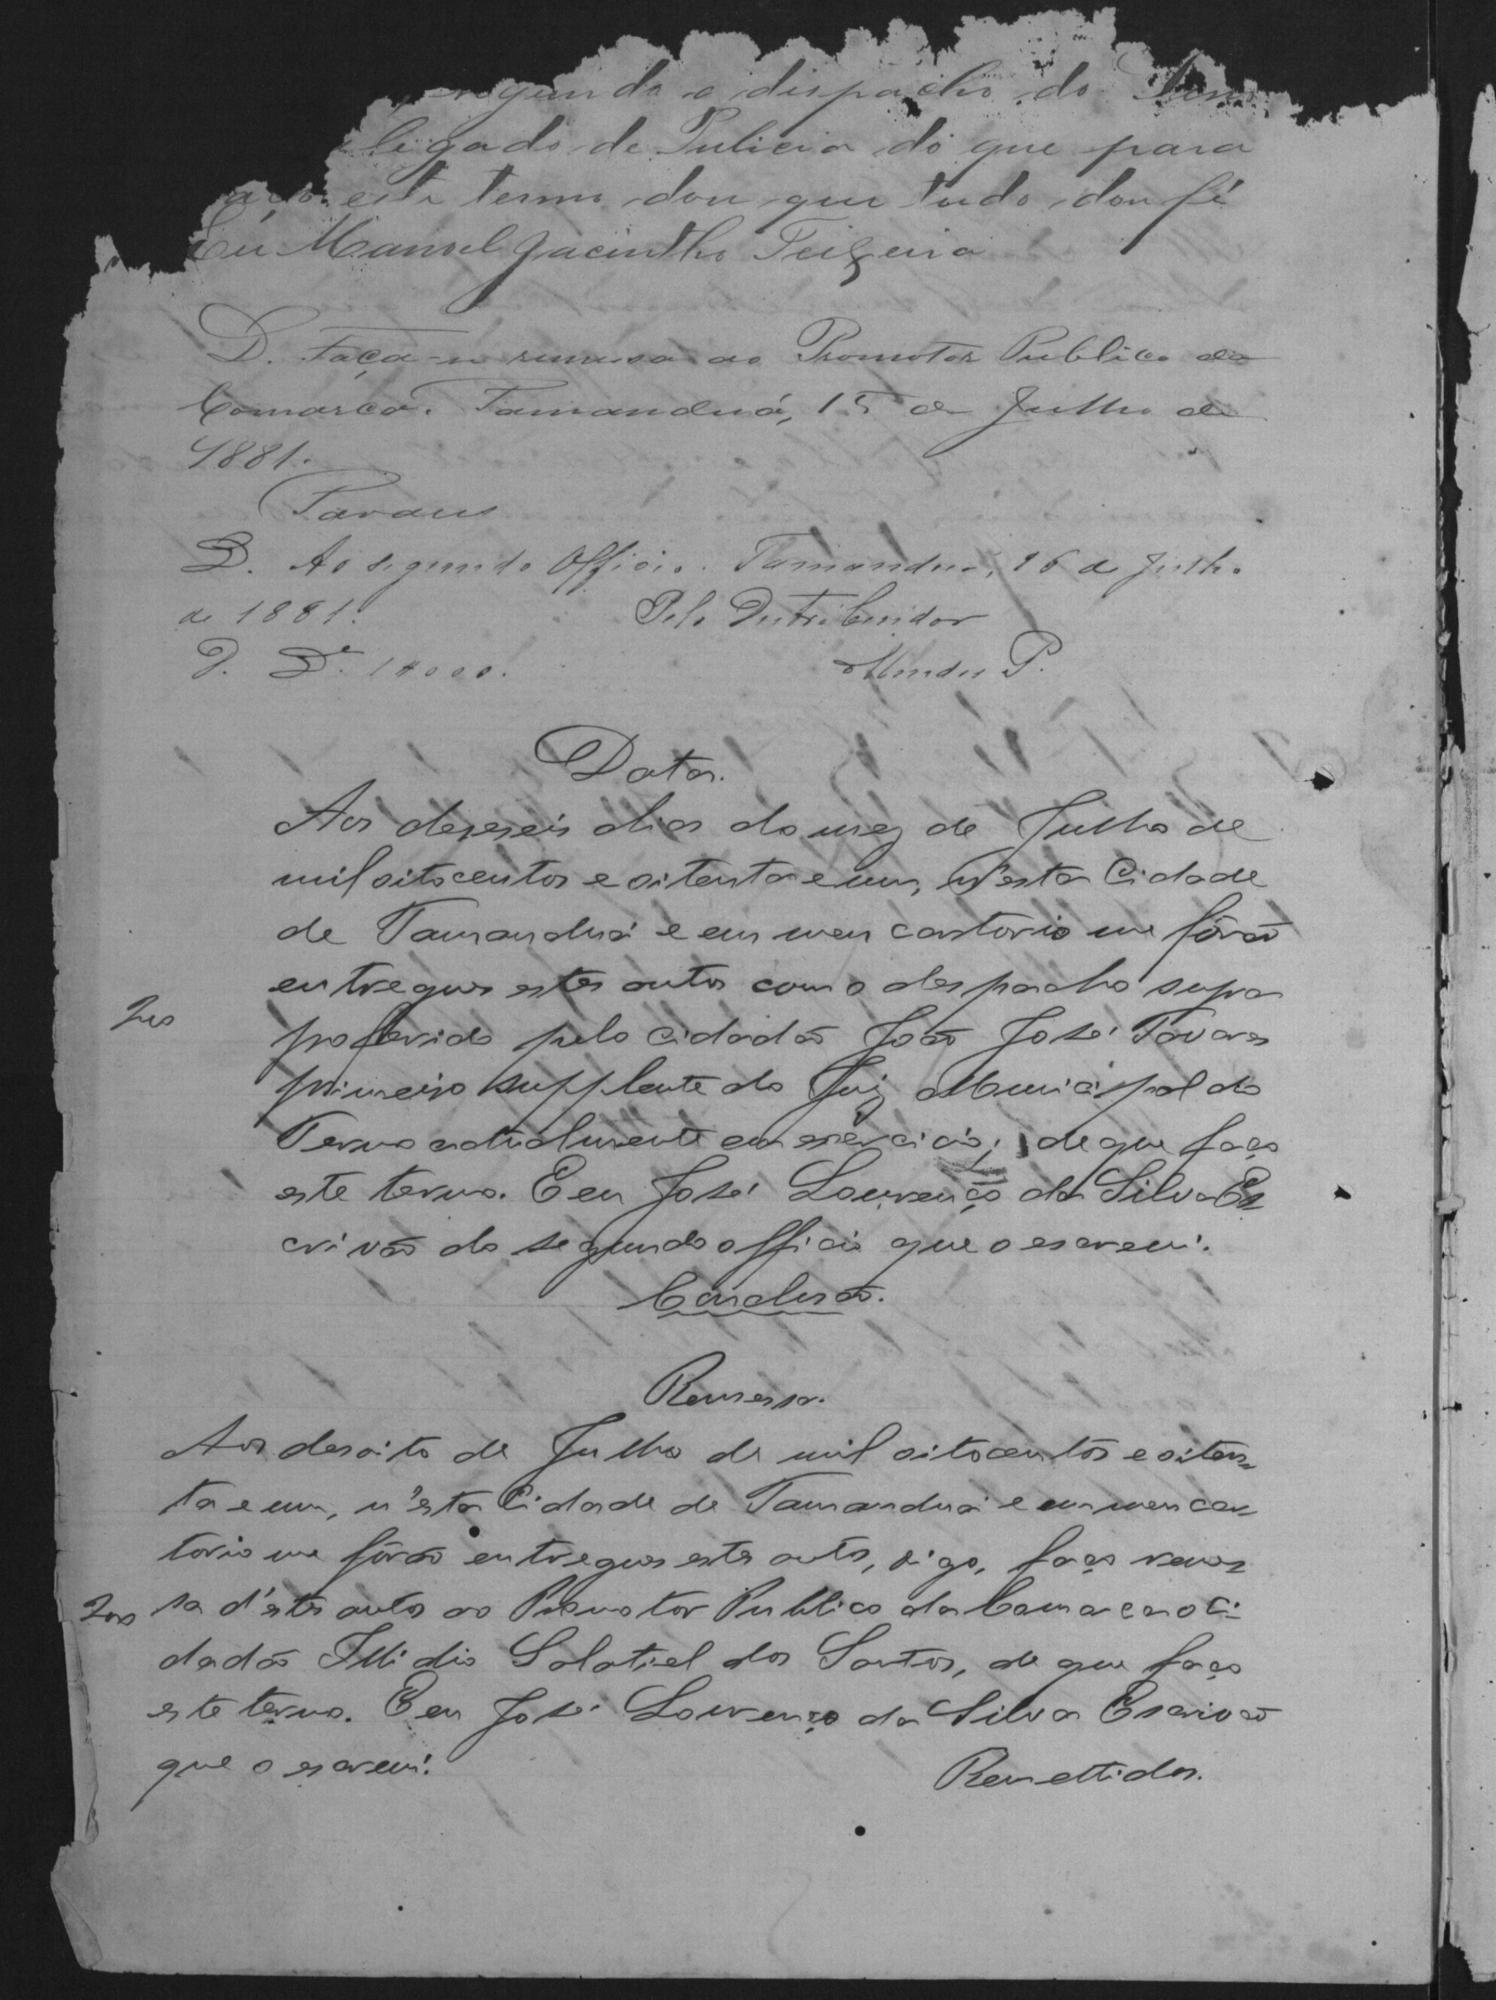 segundo o dispacho do
legado de Pulicia do que para
faço este termo dou que tudo dou fé
Eu Manoel Jacintho Teixeira
D. Faça-se remessa ao Promotor Publico da
Comarca. Tamanduá, 15 de Julho de
1881.
Tavares
D. Ao segundo Officio. Tamanduá, 16 de Julho
de 1881.
Pelo Distribuidor
D. Dr. 1#000.
Mendes P.
Data.
Aos deseseis dias do mez de Julho de
mil oitocentos e oitenta e um, n'esta Cidade
de Tamanduá e em meu cartorio me fôrão
entregues estes autos com o despacho supra
proferido pelo cidadão João José Tavares
200
primeiro supplente do Juiz Municipal do
Termo actualmente em exercicio; de que faço
este termo. E eu José Lourenço da Silva Es
crivão do segundo officio que o escrevi.
Conclusão.
Remessa.
Aos desoito de Julho de mil oitocentos e oiten-
ta e um, n'esta Cidade de Tamanduá e em meu car-
torio me fôrão entregues estes autos, digo, faço remes
200
sa d'estes autos ao Promotor Publico da Comarca o Ci-
dadão Illidio Salatiel dos Santos, de que faço
este termo. E eu José Lourenço da Silva Escrivão
que o escrevi.
Remettidos.